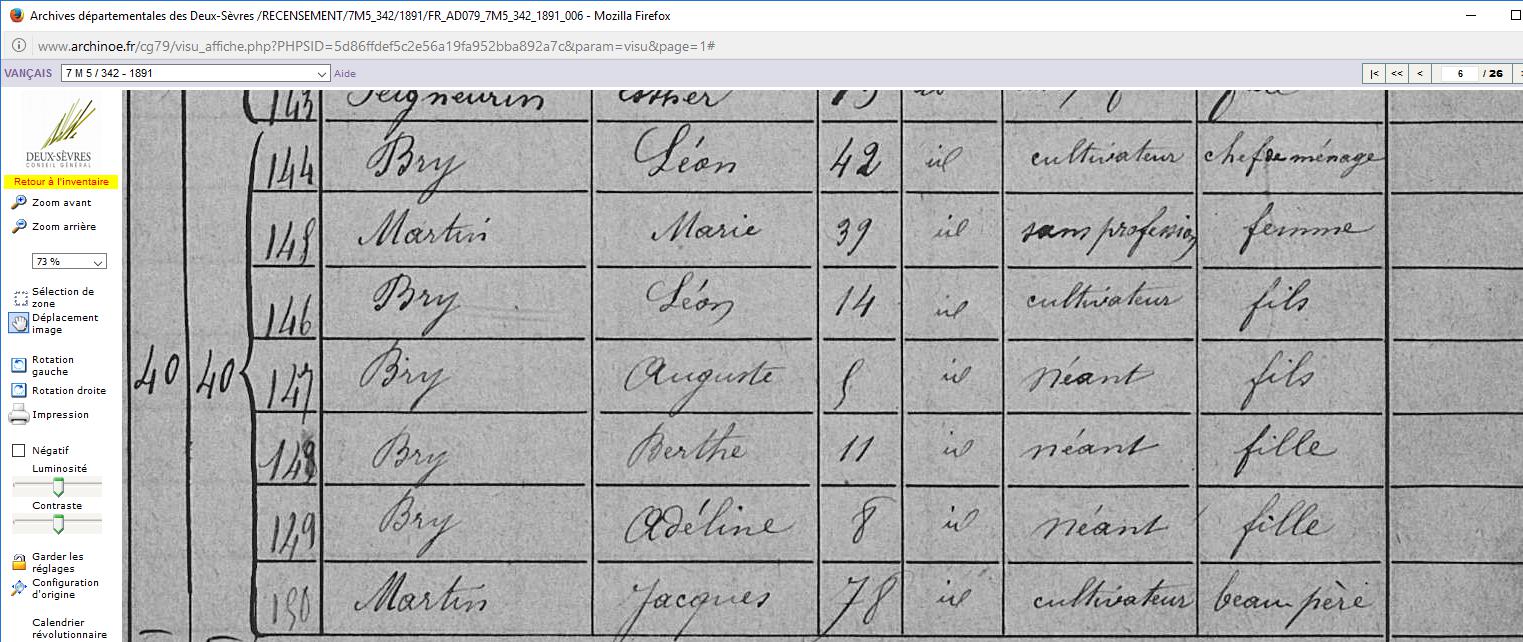 Archives départementales des Deux-Sèvres /RECENSEMENT/7M5_342/1891/FR_AD079_7M5_342_1891_006 - Mozilla Firefox
www.archinoe.fr/cg79/visu_affiche.php?PHPSID=5d86ffdef5c2e56a19fa952bba892a7c&param=visu&page=1#
VANÇAIS 7 M 5 / 342 - 1891 Aide |< << < 6 / 26
DEUX-SÈVRES
CONSEIL GÉNÉRAL
Retour à l'inventaire
Zoom avant
Zoom arrière
73 %
Sélection de
zone
Déplacement
image
Rotation
gauche
Rotation droite
Impression
Négatif
Luminosité
Contraste
Garder les
réglages
Configuration
d'origine
Calendrier
révolutionnaire
143 Seigneurin Esther
144 Bry Léon 42 id cultivateur chef de ménage
145 Martin Marie 39 id sans profession femme
146 Bry Léon 14 id cultivateur fils
40 40 147 Bry Auguste 5 id néant fils
148 Bry Berthe 11 id néant fille
149 Bry Adéline 8 id néant fille
150 Martin Jacques 78 id cultivateur beau père